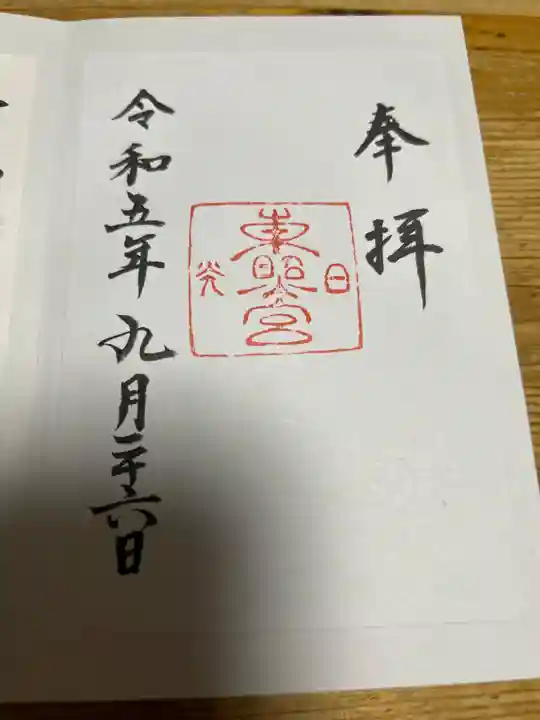 奉拝
日
東照宮
光
令和五年九月二十六日